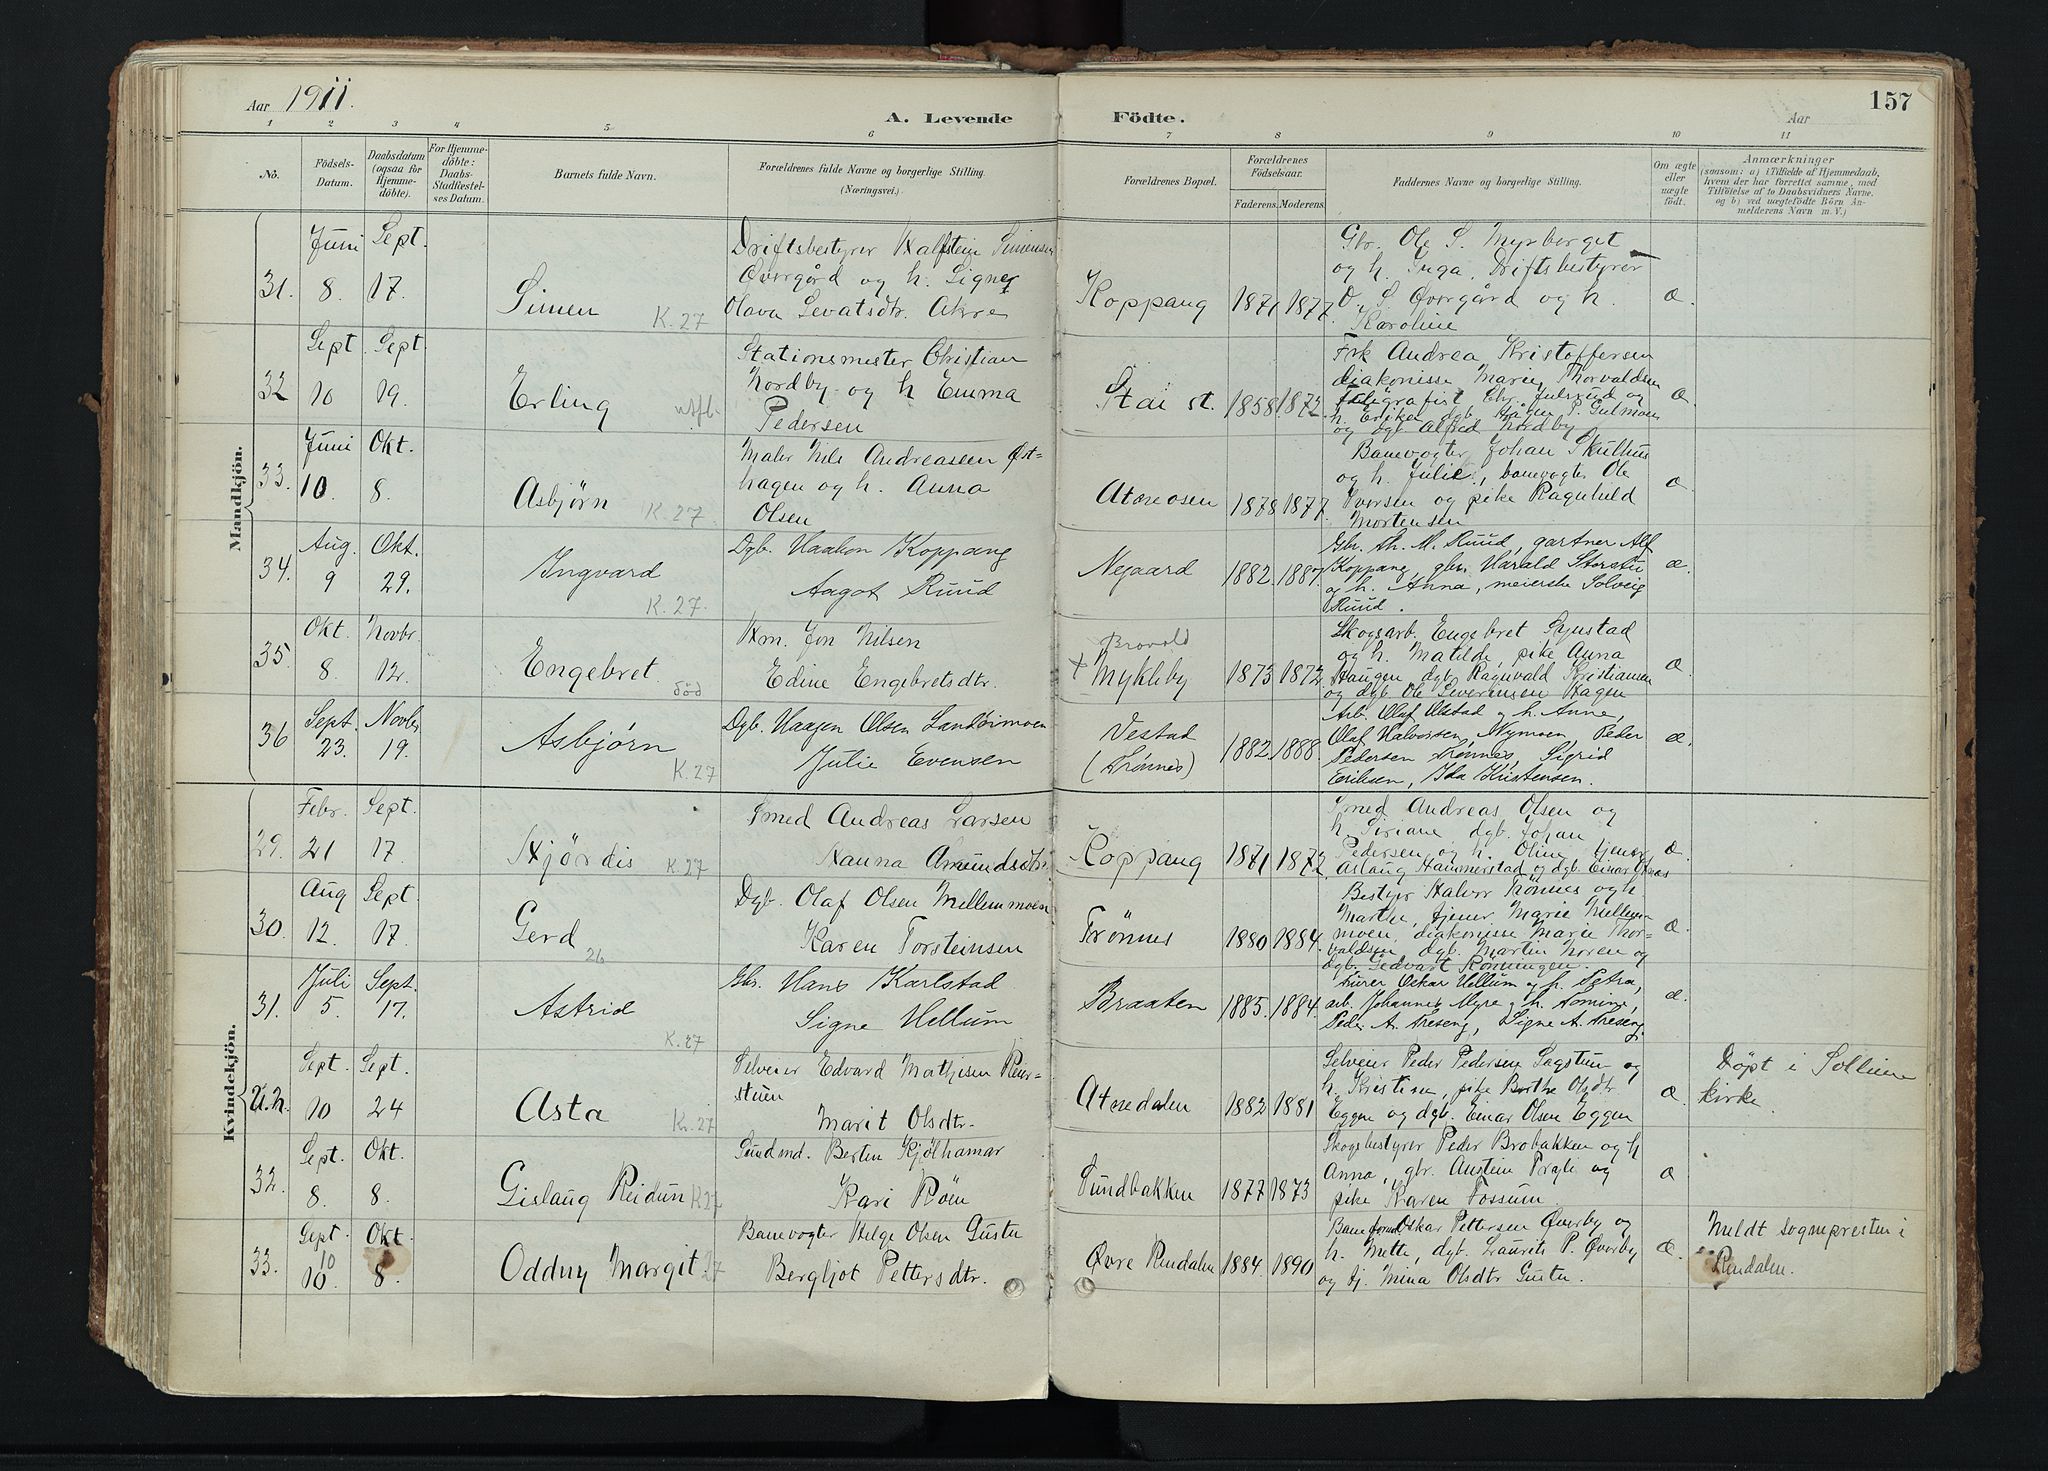 Aar 1911.
A. Levende Födte.
157
Aar
1 2 3 4 5 6 7 8 9 10 11
No.
Födsels-Datum.
Daabsdatum (ogsaa for Hjemmedöbte).
For Hjemmedöbte: Daabs-Stadfestelses Datum.
Barnets fulde Navn.
Forældrenes fulde Navne og borgerlige Stilling. (Næringsvei.)
Forældrenes Bopæl.
Forældrenes Födselsaar.
Faderens. Moderens.
Faddernes Navne og borgerlige Stilling.
Om ægte eller uægte födt.
Anmærkninger
(saasom: a) i Tilfælde af Hjemmedaab, hvem der har forrettet samme, med Tilföielse af to Daabsvidners Navne. og b) ved uægtefödte Börn Anmelderens Navn m. V.)
Mandkjön.
31. Juni 8. Sept. 17. Simen K. 27
Driftsbestyrer Halfstein Simensen
Øvergård og h. Signe
Olava Sevatsdtr. Akre
Koppang 1871 1877
Gbr. Ole S. Myrberget
og h. Inga, Driftsbestyrer
O. S. Øvergård og h.
Karoline
æ.
32 Sept 10 Sept. 19. Erling
Stationsmester Christian
Nordby og h Emma
Pedersen
Stai st. 1858 1872
Frk Andrea Kristoffersen
diakonisse Marie Thorvaldsen
telegrafist Chr. Julsrud og
h. Erika dgb. Hågen P. Gulmoen
og dgb. Alfred Nordby
æ.
33. Juni 10 Okt. 8. Asbjørn K. 27
Maler Nils Andreassen Øst-
hagen og h. Anna
Olsen
Atneosen 1878 1877
Banevogter Johan Skulhus
og h. Julie, banevogter Ole
Iversen og pike Ragnhild
Mortensen
æ
34. Aug. 9 Okt. 29. Ingvard K. 27.
Dgb. Haakon Koppang
Aagot Ruud
Nygaard 1882
Gbr. Th. M. Ruud, gartner Alf
Koppang, gbr. Harald Storstu
og h. Anna, meierske Solveig
Ruud.
æ.
35. Okt. 8. Novbr. 12. Engebret. död
Hm. Jon Nilsen
Edine Engebretsdtr.
Brovold
+ Mykleby 1873 1872
Skogsarb. Engebret
og h. Matilde, pike Anna
Haugen dgb. Ragnvald Kristiansen
og dgb. Ole Severinsen Hagen
æ
36 Sept. 23. Novbr 19. Asbjørn K. 27
Dgb. Haagen Olsen Landsimoen
Julie Evensen
Vestad
(Trønnes) 1882 1888
Arb. Olaf Ølstad og h. Anne,
Olaf Halvorsen, Nymoen, Peder
Pedersen Trønnes, Sigrid
Eriksen, Ida Kristensen.
æ.
Kvindekjön.
29. Febr. 21 Sept. 17. Hjørdis K. 27
Smed Andreas Larsen
Hanna Amundsdtr.
Koppang 1871 1872
Smed Andreas Olsen og
h. Siriane dgb. Johan
Pedersen og h. Oline tjener
Aslaug Hammerstad og dgb. Einar
æ
30. Aug 12. Sept. 17 Gerd 26
Dgb. Olaf Olsen Mellemmoen
Karen Torsteinsen
Trønnes 1880 1884
Bestyr Halvor Trønnes og h.
Marthe, tjener Marie Mellem-
moen, diakonisse Marie Thor-
valdsen dgb. Martin Noren og
dgb. Gedvart Rønningen.
æ.
31. Juli 5. Sept. 17. Astrid K. 27
Gbr. Hans Karlstad
Signe Hellum
Braaten 1885. 1884.
Furer Oskar Hellum og h. Petra,
arb. Johannes Myre og h. Tomine,
Peder A. Treseng, Signe A. Treseng
æ.
U.n. Sept. 10 Sept. 24 Asta K. 27
Selveier Edvard Mathisen
stuen
Marit Olsdtr.
Atnedalen 1882 1881
Selveier Peder Pedersen Sagstuen og
h. Kristine, pike Berthe Olsdtr
Eggen og dgb. Einar Olsen Eggen
æ.
Döpt i Sollien
kirke.
32. Sept. 8. Okt. 8. Gislaug Reidun K27
Sundmd. Berten Kjølhamar
Kari Røm
Sundbakken 1877 1873
Skogsbestyrer Peder Brobakken og h
Anna, gbr. Austein Prgti og
pike Karen Fossum.
æ
33. Sept 10 10 Okt 8. Oddny Margit 27
Banevogter Helge Olsen Gustu
Bergljot Pettersdtr.
Øvre Rendalen 1884. 1890
Baneformd Oskar Pettersen Øverby og
h. Mette, dgb. Laurits P. Øverby
og tj. Mina Olsdtr Gustu.
æ.
Meldt sognepresten i
Rendalen.